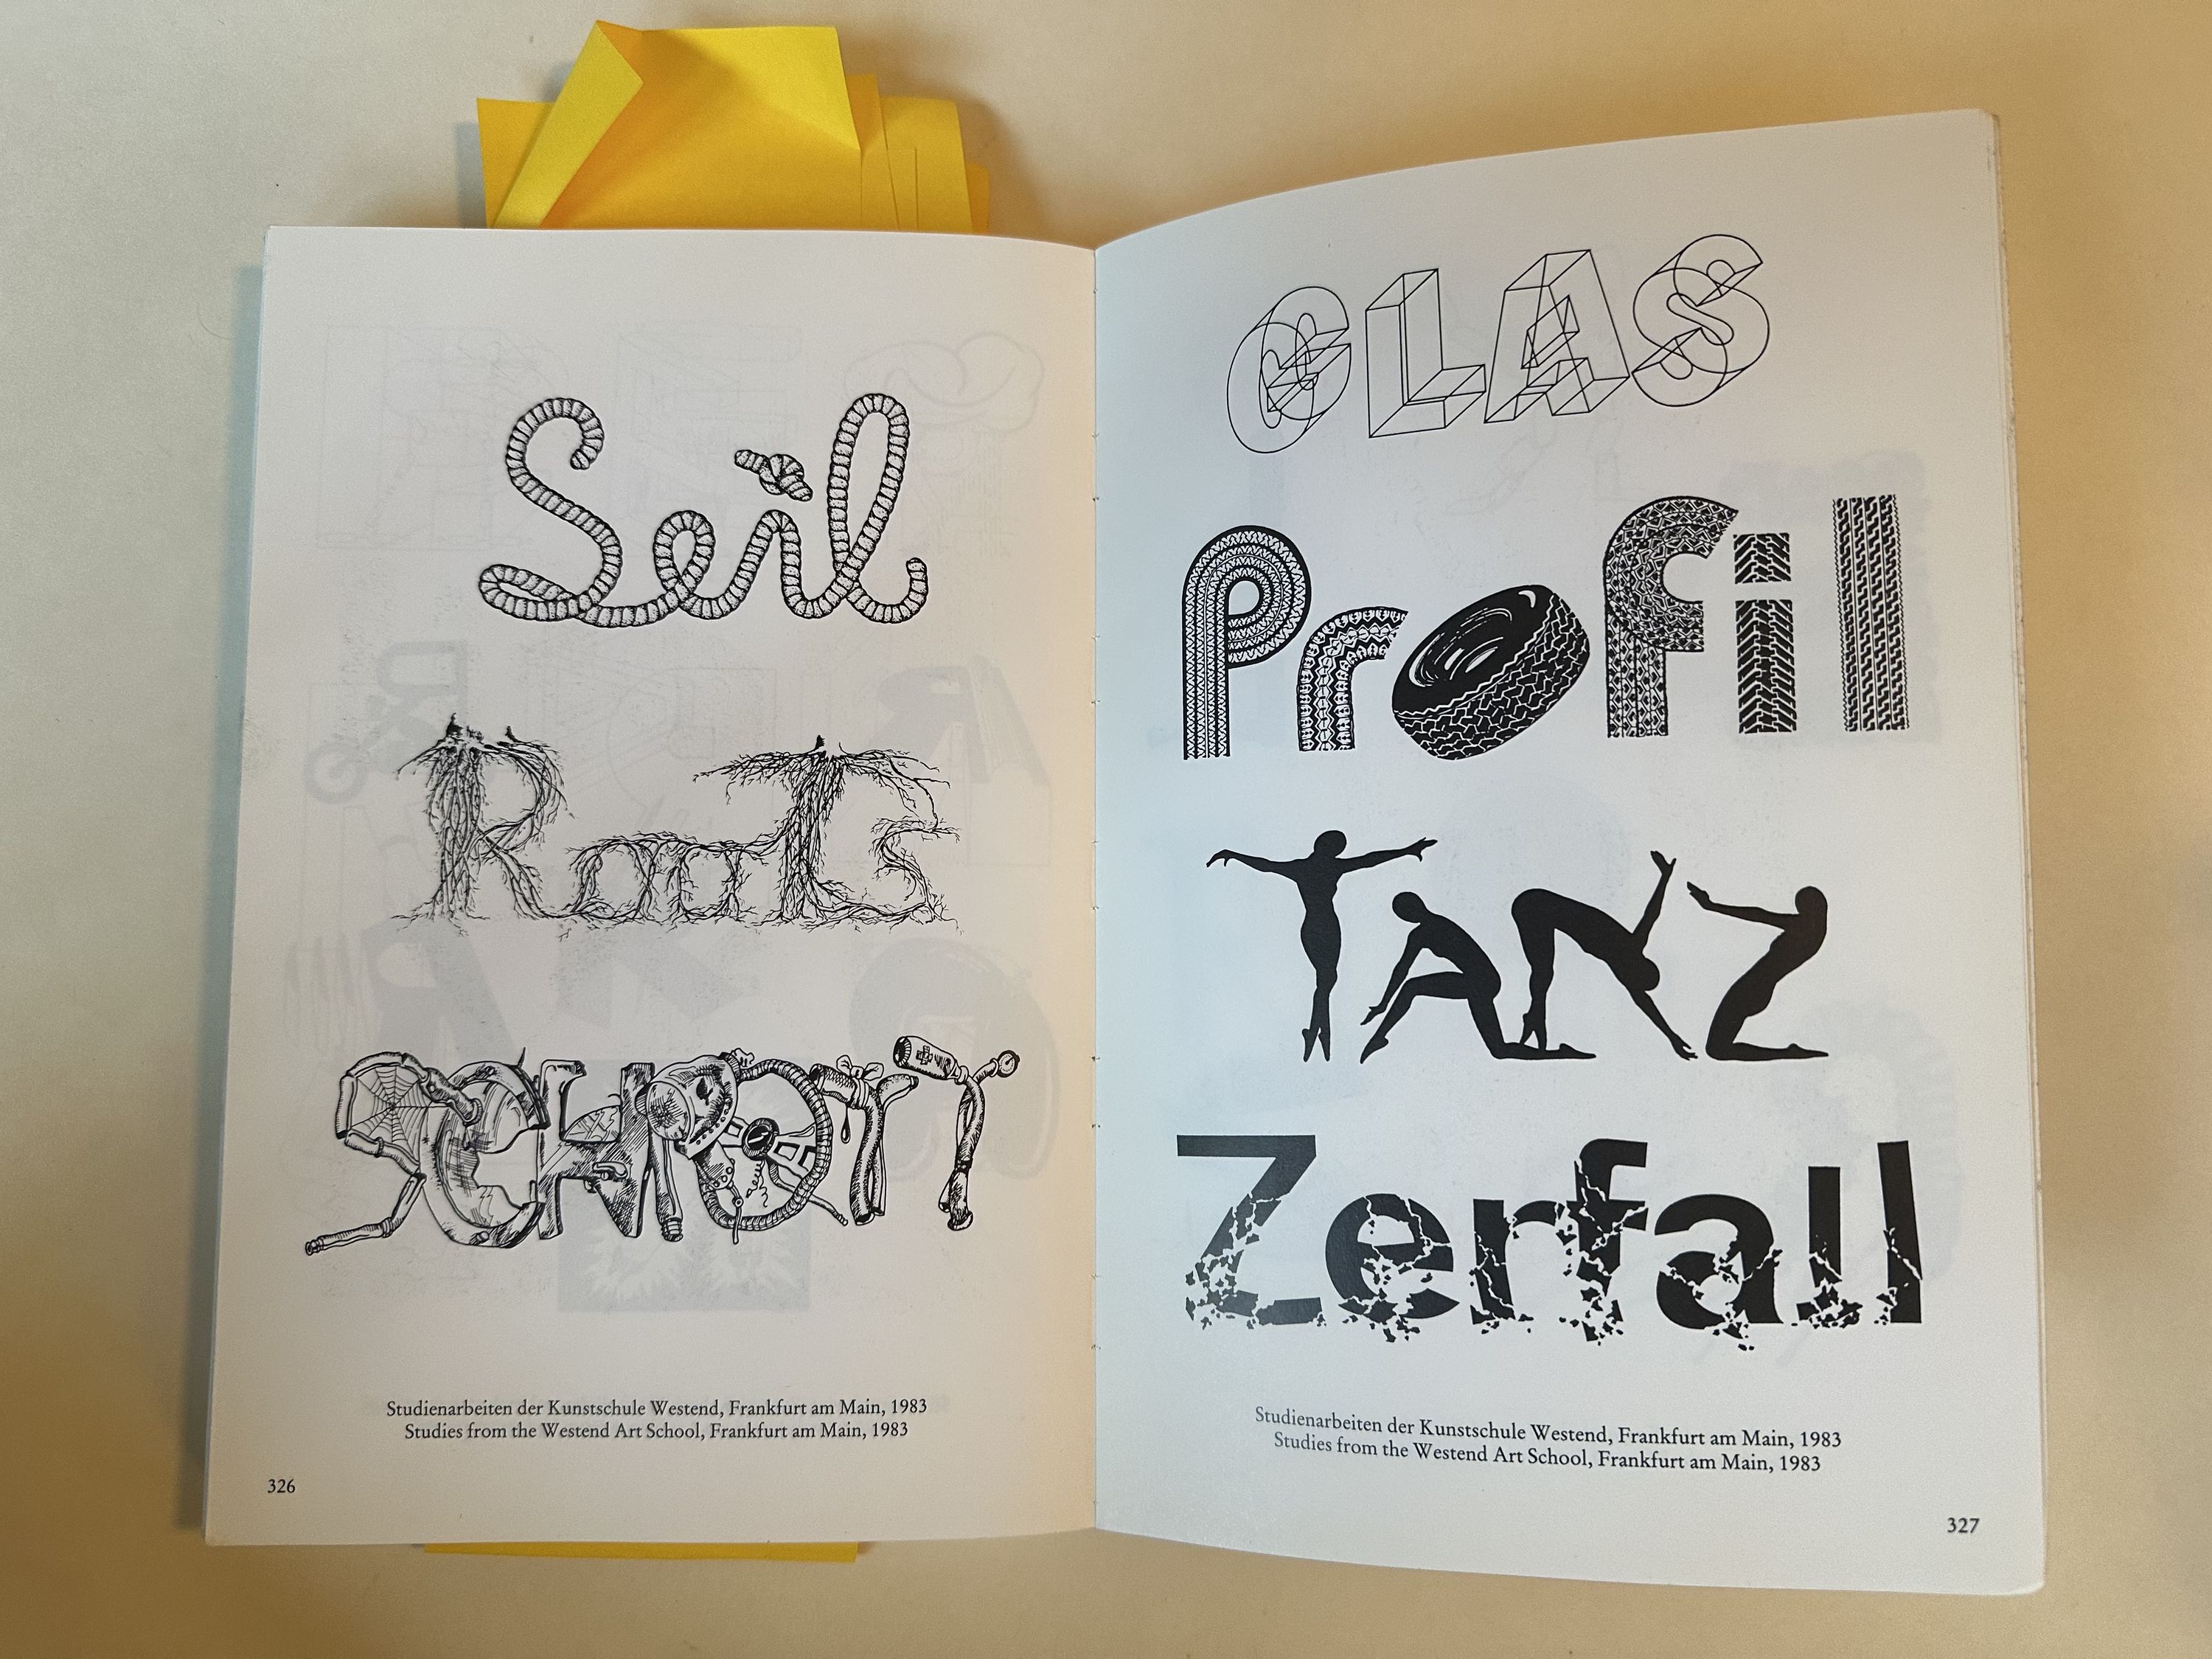 Seil
Roots
SCHROTT
Studienarbeiten der Kunstschule Westend, Frankfurt am Main, 1983
Studies from the Westend Art School, Frankfurt am Main, 1983
326
GLAS
Profil
TANZ
Zerfall
Studienarbeiten der Kunstschule Westend, Frankfurt am Main, 1983
Studies from the Westend Art School, Frankfurt am Main, 1983
327